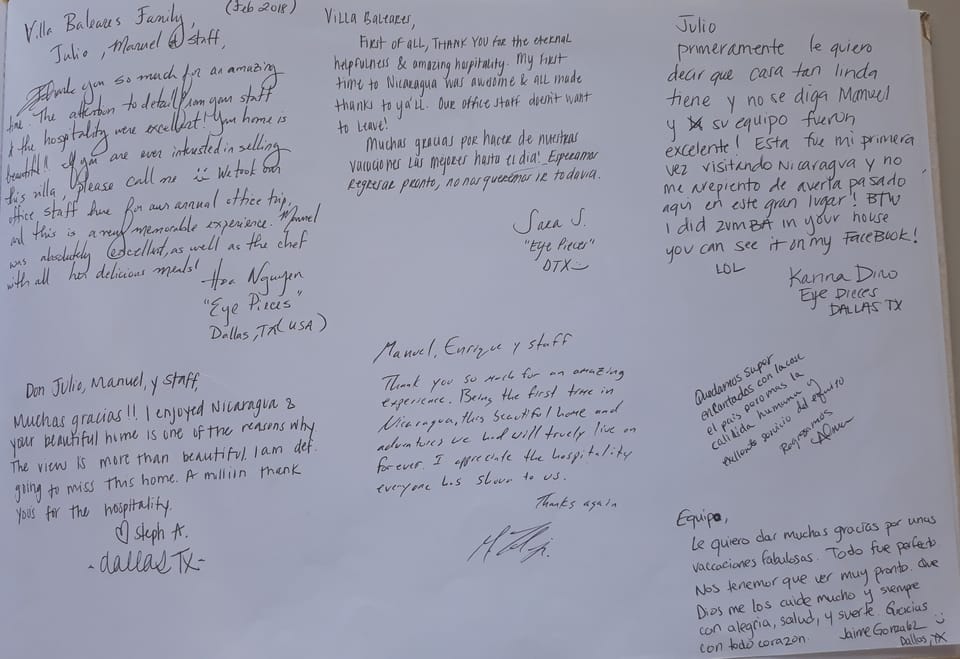 Villa Baleares Family, (Feb 2018)
Julio, Manuel & staff,
Thank you so much for an amazing
time. The attention to detail from your staff
& the hospitality were excellent! Your home is
beautiful! If you are ever interested in selling
this villa, please call me :) We took our
office staff here for our annual office trip,
and this is a very memorable experience. Manuel
was absolutely excellent, as well as the chef
with all her delicious meals!
Hoa Nguyen
"Eye Pieces"
Dallas, TX (USA)
Villa Baleares,
First of all, thank you for the eternal
helpfulness & amazing hospitality. My first
time to Nicaragua was awesome & all made
thanks to ya'll. Our office staff doesn't want
to leave!
Muchas gracias por hacer de nuestras
vacaciones las mejores hasta el dia! Esperamos
regresar pronto, no nos queremos ir todavia.
Sara S.
"Eye Pieces"
DTX
Julio
primeramente le quiero
decir que casa tan linda
tiene y no se diga Manuel
y su equipo fueron
excelente! Esta fue mi primera
vez visitando Nicaragua y no
me arepiento de averla pasado
aqui en este gran lugar! BTW
I did ZUMBA in your house
you can see it on my FaceBook!
LOL
Karina Dino
Eye Pieces
DALLAS TX
Don Julio, Manuel, y staff,
Muchas gracias!! I enjoyed Nicaragua &
your beautiful home is one of the reasons why
The view is more than beautiful. I am def.
going to miss this home. A million thank
yous for the hospitality.
♡ Steph A.
-dallas TX-
Manuel, Enrique y staff
Thank you so much for an amazing
experience. Being the first time in
Nicaragua, this beautiful home and
adventures we had will truely live on
forever. I appreciate the hospitality
everyone has shown to us.
Thanks again
Quedamos super
encantados con la casa
el pais pero mas la
calidida humana y
exelente servicio del equipo
Regresamos
Equipo,
Le quiero dar muchas gracias por unas
vaccaciones fabulosas. Todo fue perfecto
Nos tenemor que ver muy pronto. Que
Dios me los cuide mucho y siempre
con alegria, salud, y suerte. Gracias
con todo corazon. Jaime Gonzalez :)
Dallas, TX